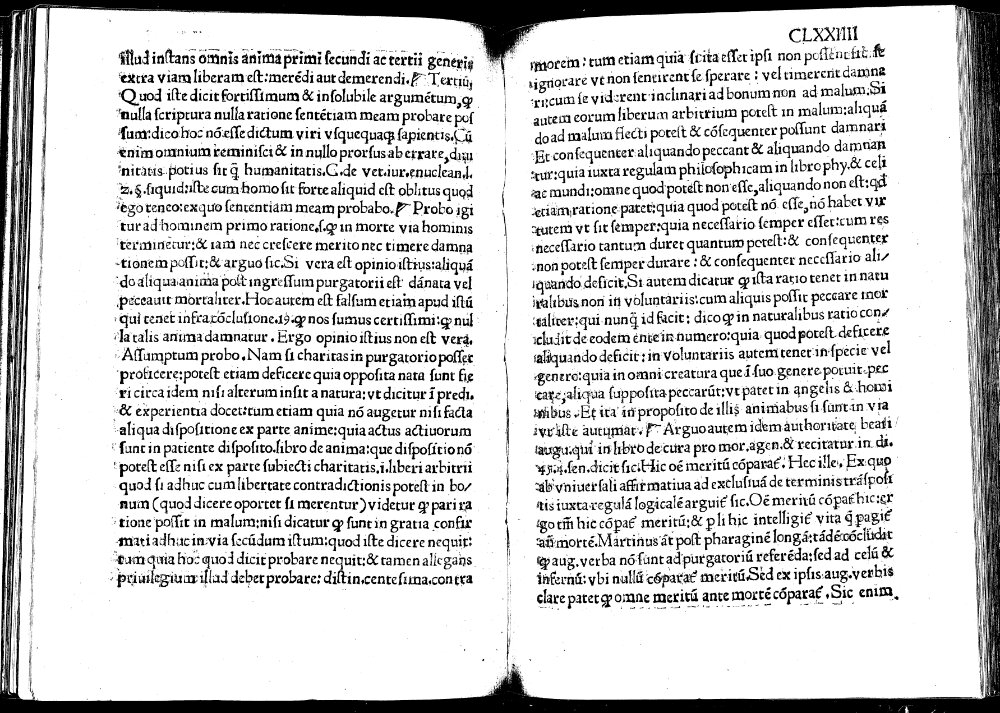 illud instans omnis anima primi secundi ac tertii generis
extra viam liberam est: merēdi aut demerendi. ☞ Tertiū,
Quod iste dicit fortissimum & insolubile argumētum, ꝙ
nulla scriptura nulla ratione sentētiam meam probare pos
sum: dico hoc nō esse dictum viri vsquequaqꝫ sapientis. Cū
enim omnium reminisci & in nullo prorsus ab errare, diui
nitatis potius sit q̄ humanitatis. C. de vet. iur. enuclean. l.
2. §. si quid: iste cum homo sit forte aliquid est oblitus quod
ego teneo: ex quo sententiam meam probabo. ☞ Probo igi
tur ad hominem primo ratione, s. ꝙ in morte via hominis
terminetur: & iam nec crescere merito nec timere damna
tionem possit: & arguo sic. Si vera est opinio istius: aliquā
do aliqua anima post ingressum purgatorii est dānata vel
peccauit mortaliter. Hoc autem est falsum etiam apud istū
qui tenet infra cōclusione. 19. ꝙ nos sumus certissimi: ꝙ nul
la talis anima damnatur. Ergo opinio istius non est vera.
Assumptum probo. Nam si charitas in purgatorio posset
proficere: potest etiam deficere quia opposita nata sunt fie
ri circa idem nisi alterum insit a natura: vt dicitur ī predi.
& experientia docet: tum etiam quia nō augetur nisi facta
aliqua dispositione ex parte anime: quia actus actiuorum
sunt in patiente disposito. libro de anima: que dispositio nō
potest esse nisi ex parte subiecti charitatis, i. liberi arbitrii
quod si adhuc cum libertate contradictionis potest in bo/
num (quod dicere oportet si merentur) videtur ꝙ pari ra
tione possit in malum: nisi dicatur ꝙ sunt in gratia confir
mati adhuc in via secūdum istum: quod iste dicere nequit:
tum quia hoc quod dicit probare nequit: & tamen allegans
priuilegium illud debet probare: distin. centesima. contra
CLXXIIII
morem: tum etiam quia scita esset ipsi non possent sic se
ignorare vt non sentirent se sperare: vel timerent damna
ri: cum se viderent inclinari ad bonum non ad malum. Si
autem eorum liberum arbitrium potest in malum: aliquā
do ad malum flecti potest & cōsequenter possunt damnari
Et consequenter aliquando peccant & aliquando damnan
tur: quia iuxta regulam philosophicam in libro phy. & celi
ac mundi: omne quod potest non esse, aliquando non est: qd
etiam ratione patet: quia quod potest nō esse, nō habet vir
tutem vt sit semper: quia necessario semper esset: cum res
necessario tantum duret quantum potest: & consequenter
non potest semper durare: & consequenter necessario ali/
quando deficit. Si autem dicatur ꝙ ista ratio tenet in natu
ralibus non in voluntariis: cum aliquis possit peccare mor
taliter: qui nunq̄ id facit: dico ꝙ in naturalibus ratio con/
cludit de eodem ente in numero: quia quod potest deficere
aliquando deficit: in voluntariis autem tenet in specie vel
genere: quia in omni creatura que ī suo genere potuit pec
care, aliqua supposita peccarūt: vt patet in angelis & homi
nibus. Et ita in proposito de illis animabus si sunt in via
vt iste autumat. ☞ Arguo autem idem authoritate beati
augu. qui in libro de cura pro mor. agen. & recitatur in di.
45. 4. sen. dicit sic. Hic oē meritū cōparat̄. Hec ille. Ex quo
ab vniuersali affirmatiua ad exclusiuā de terminis trāsposi
tis iuxta regulā logicalē arguit̄ sic. Oē meritū cōpat̄ hic: er
go tm̄ hic cōpat̄ meritū: & ꝑ li hic intelligit̄ vita q̄ pagit̄
añ mortē. Martinus āt post pharaginē longā: tādē cōcludit
ꝙ aug. verba nō sunt ad purgatoriū referēda: sed ad celū &
infernū: vbi nullū cōparat̄ meritū. Sed ex ipsis aug. verbis
clare patet ꝙ omne meritū ante mortē cōparat̄. Sic enim